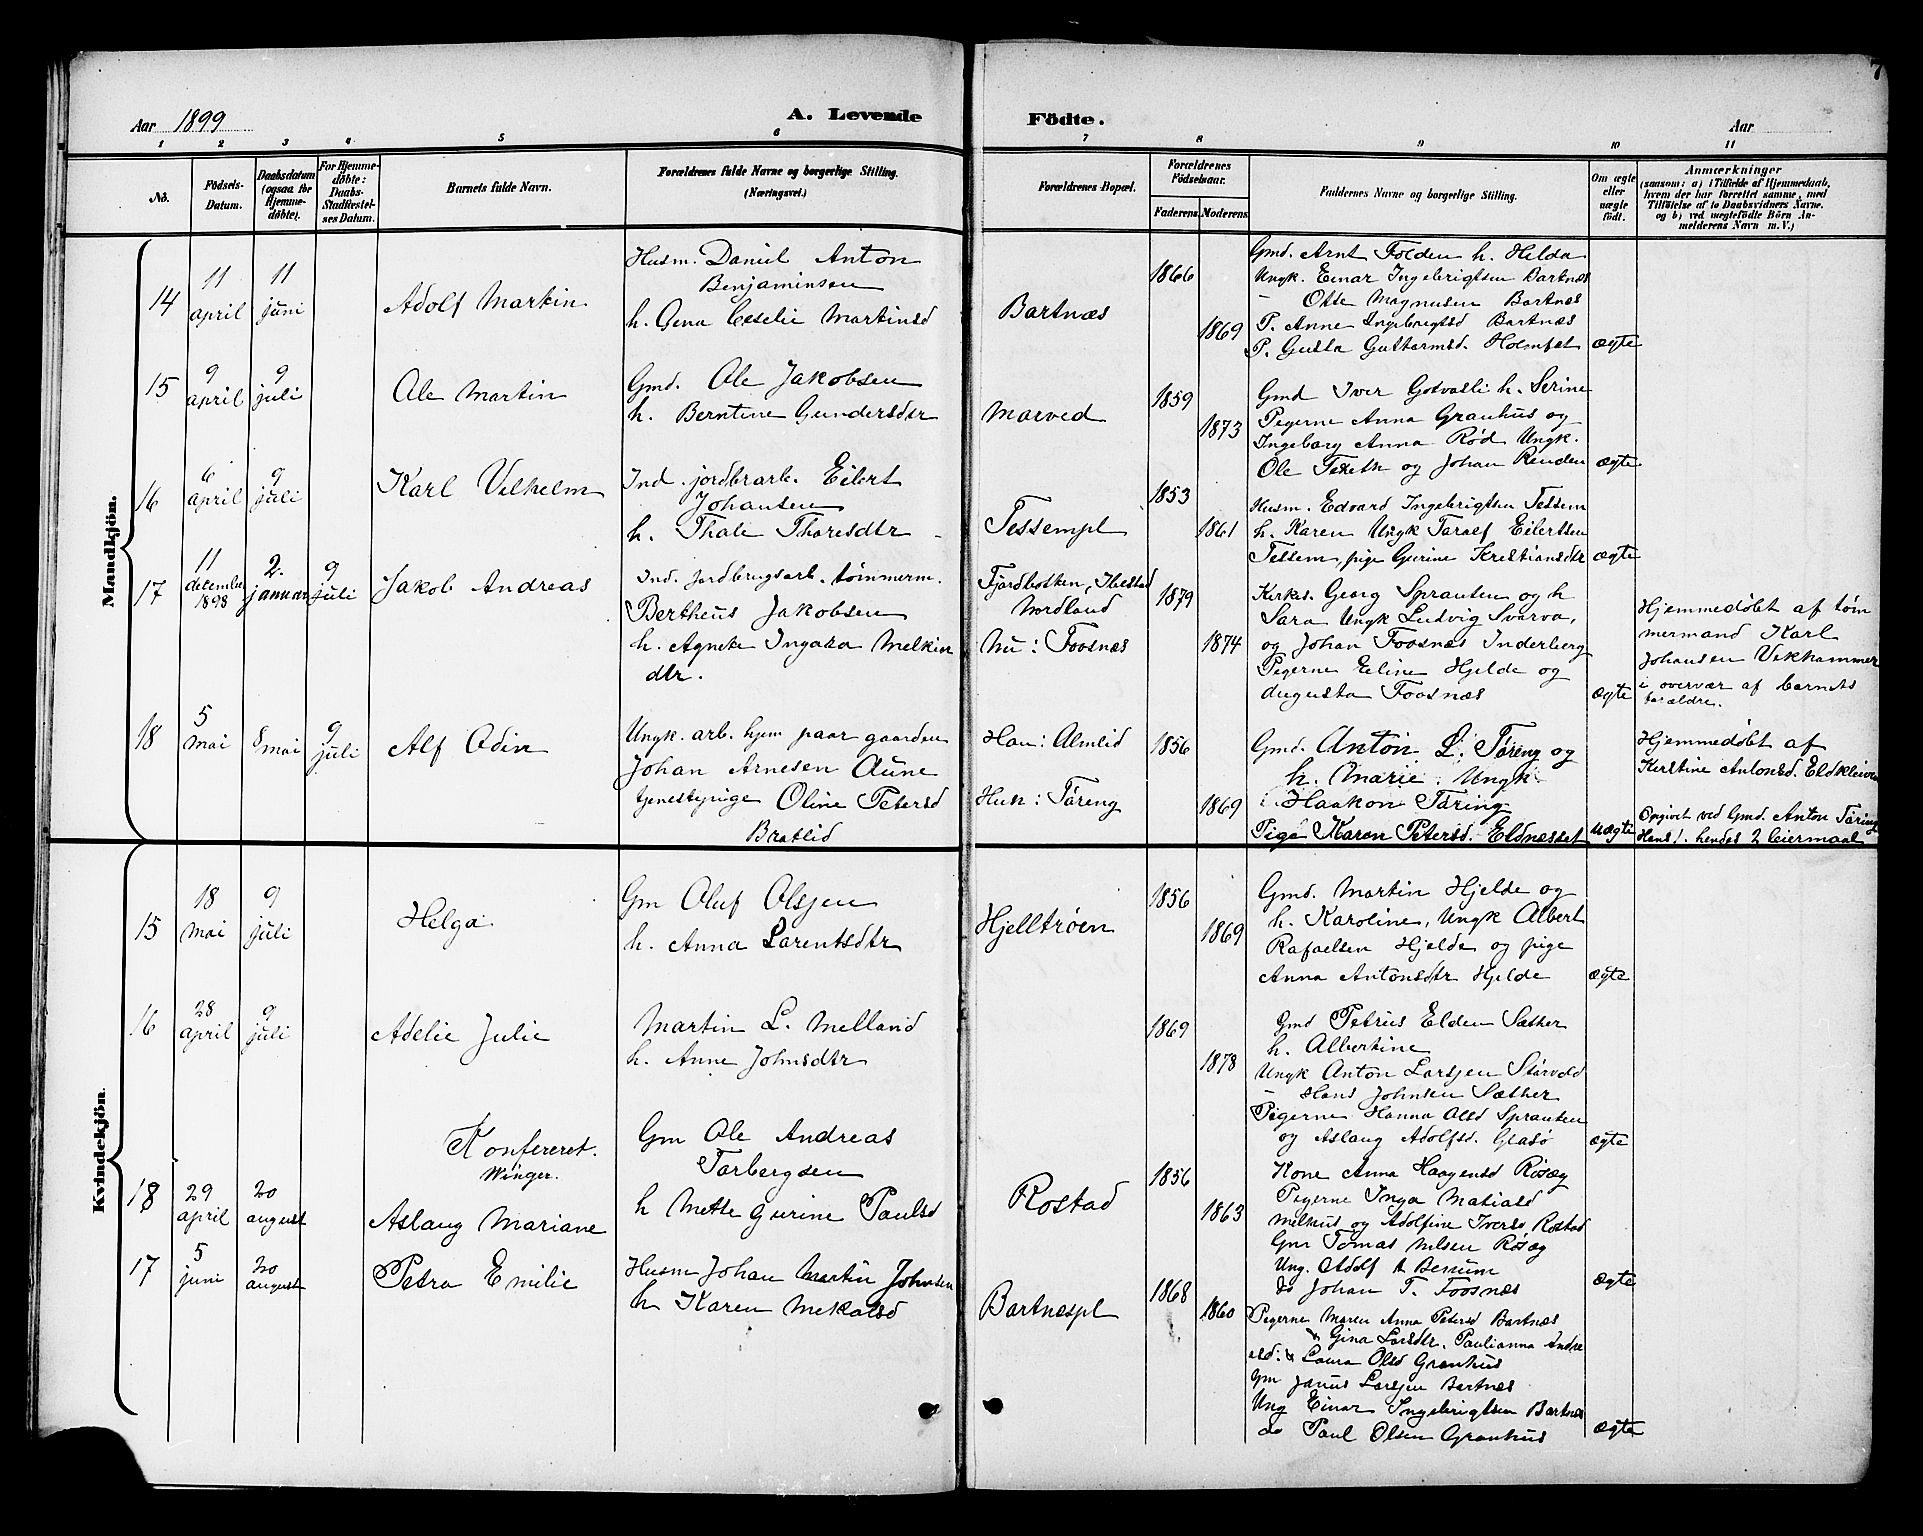 7
Aar 1899
A. Levende
Födte.
Aar
1 2 3 4 5 6 7 8 9 10 11
No.
Födsels-
Datum.
Daabsdatum
(ogsaa for
Hjemme-
döbte).
For Hjemme-
döbte:
Daabs-
Stadfæstel-
ses Datum.
Barnets fulde Navn.
Forældrenes fulde Navne og borgerlige Stilling.
(Næringsvei.)
Forældrenes Bopæl.
Forældrenes
Födselsaar.
Faderens Moderens
Faddernes Navne og borgerlige Stilling.
Om ægte
eller
uægte
födt.
Anmærkninger
(saasom: a) i Tilfælde af Hjemmedaab,
hvem der har forrettet samme, med
Tilföielse af to Daabsvidners Navne,
og b) ved uægtefödte Börn An-
melderens Navn m. V.)
Mandkjön.
14
11
april
11
juni
Adolf Markin
Husm. Daniel Anton
Benjaminsen
h. Gena Ceselie Martinsd
Bartnæs
1866
1869
Gmd. Arnt Folden h. Helda
Ungk. Einar Ingebrigtsen Bartnæs
– Otte Magnusen Bartnæs
P. Anne Ingebrigtsd Bartnæs
P. Gusta Guttormsd. Holmset
ægte
15
9
april
9
juli
Ole Martin
Gmd. Ole Jakobsen
h. Berntine Gundersdtr
Marved
1859
1873
Gmd Iver Godvolli h. Serine
Pegerne Anna Granhus og
Ingeborg Anna Rød Ungk.
Ole og Johan Renden
ægte
16
6
april
9
juli
Karl Vilhelm
Ind. jordbrarb. Eilert
Johansen
h. Thale Thoresdtr
Tessempl
1853
1861
Husm. Edvard Ingebrigtsen Tessem
h. Karen Ungk Taralf Eilertsen
Tessem, pige Gurine Kristiansdtr
ægte
17
11
december
1898
2.
januar
9
juli
Jakob Andreas
Ind. jordbrugsarb. tømmerm.
Bertheus Jakobsen
h. Agnete Ingara Melkin
dtr.
Fjordbotten, Ibestad
Nordland
Nu: Foosnæs
1879
1874
Kirkes. Georg Sprauten og h
Sara Ungk Ludvig Svarva,
og Johan Foosnæs Inderberg
Pegerne Eline Hjelde og
Augusta Foosnæs
ægte
Hjemmedøbt af tøm
mermand Karl
Johansen Vikhammer
i overvær af barnets
forældre.
18
5
mai
8 mai
9
juli
Alf Odin
Ungk. arb. hjem paar gaarden
Johan Arnesen Aune
tjenestepige Oline Petersd
Bratlid
Han: Almlid
Hun: Tøreng
1856
1869
Gmd. Anton L. Tøreng og
h. Marie. Ungk
Haakon Tøring
Pige Karen Petersd. Eldnesset
uægte
Hjemmedøbt af
Kirstine Antonsd. Eldkleiven
Opgivet ved Gmd. Anton Tøring
Hans 1. hendes 2 leiermaal
Kvindekjön.
15
18
mai
9
juli
Helga
Gm Oluf Olsjen
h. Anna Larentsdtr
Hjelltrøen
1856
1869
Gmd. Martin Hjelde og
h. Karoline, Ungk Albert
Rafaelsen Hjelde og pige
Anna Antonsdtr Hjelde
ægte
16
28
april
9
juli
Adelie Julie
Martin L. Melland
h. Anne Johnsdtr
1869
1878
Gmd Petrus Elden Sæther
h. Albertine
Ungk Anton Larsjen Størvold
– Hans Johnsen Sæther
Pegerne Hanna Olsd Sprauten
og Aslaug Adolfsd. Glasø
ægte
Konfereret.
Winger.
18
29
april
20
august
Aslaug Mariane
Gm Ole Andreas
Torbergsen
h Mette Gurine Paulsd
Rostad
1856
1863
Kone Anna Haagensd Røsæg
Pegerne Inga Matiasd
Melhus og Adolfine Iversd Rostad
Gm Tomas Nilsen Røsæg
Ung. Adolf A Bessum
do Johan T. Foosnæs
ægte
17
5
juni
20
august
Petra Emilie
Husm Johan Martin Johnsen
h Karen Mekalsd
Bartnespl
1868
1860
Pegerne Maren Anna Petersd Bartnæs
& Gina Larsdtr. Paulianna Andre
asd. & Laura Olsd Granhus
Gm Janus Larsjen Bartnæs
Ung Einar Ingebrigtsen Bartnæs
do Paul Olsen Granhus
ægte